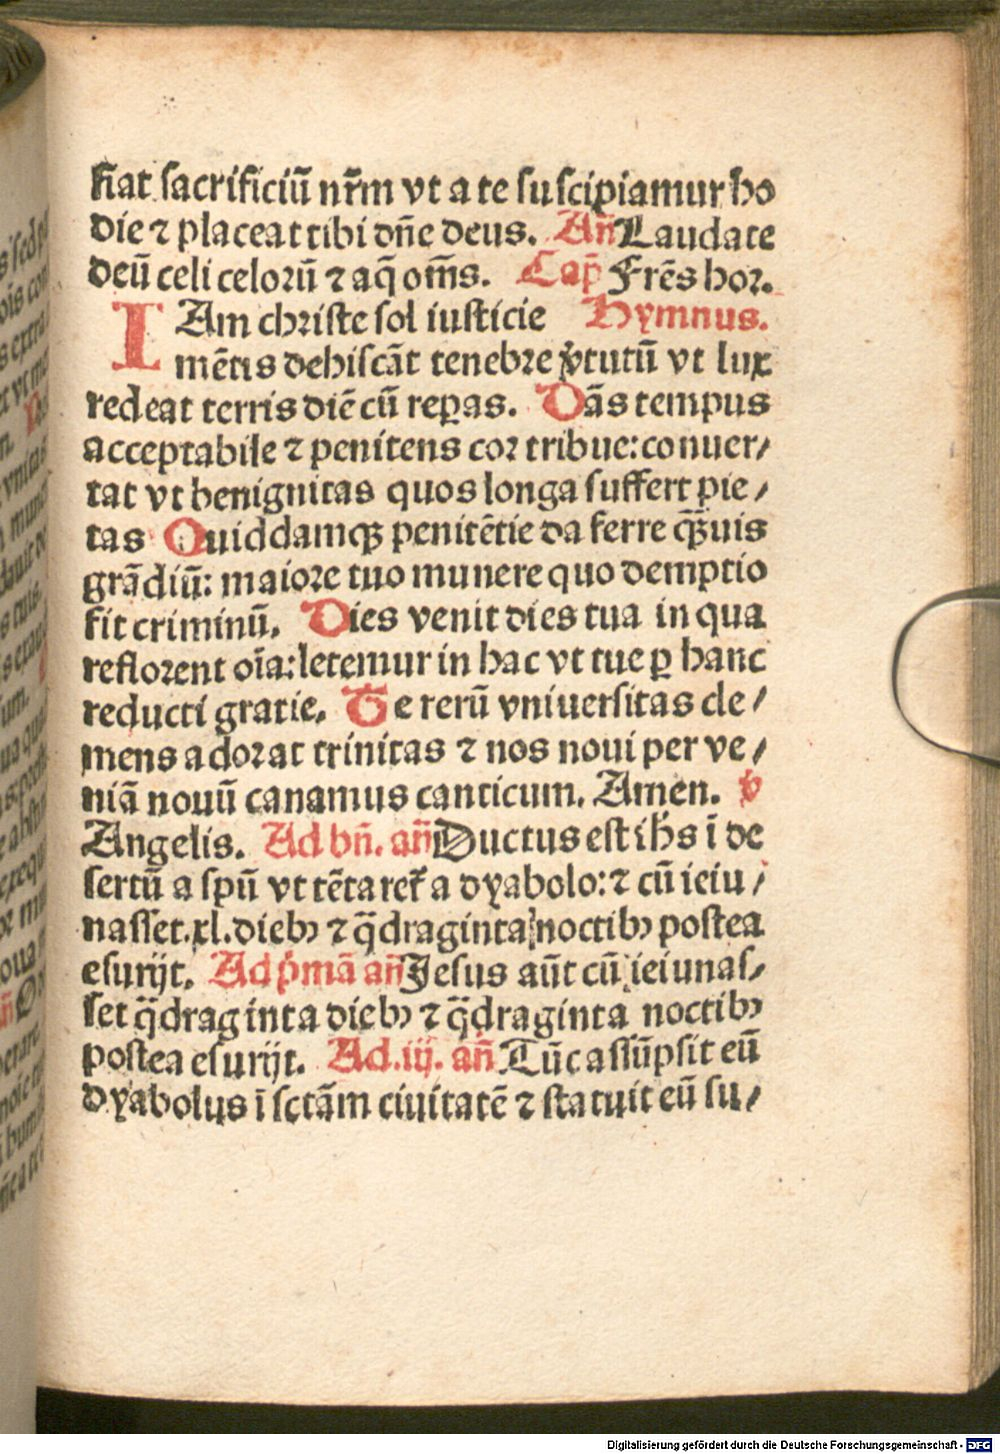 fiat sacrificiū nr̄m vt a te suscipiamur ho
die ⁊ placeat tibi dn̄e deus. An̄ Laudate
deū celi celorū ⁊ aq̄ om̄s. Cap̄ Frēs hor.
IAm christe sol iusticie Hymnus.
mētis dehiscāt tenebre v̄tutū vt lux
redeat terris diē cū reꝑas. Dās tempus
acceptabile ⁊ penitens cor tribue: conuer/
tat vt benignitas quos longa suffert pie/
tas Quiddamqꝫ penitētie da ferre qꝫ̄uis
grādiū: maiore tuo munere quo demptio
fit criminū. Dies venit dies tua in qua
reflorent oīa: letemur in hac vt tue ꝑ hanc
reducti gratie. Te rerū vniuersitas cle/
mens adorat trinitas ⁊ nos noui per ve/
niā nouū canamus canticum. Amen. v̄
Angelis. Ad bn̄. an̄ Ductus est ih̄s ī de
sertū a sp̄u vt tētaret᷑ a dyabolo: ⁊ cū ieiu/
nasset .xl. diebꝰ ⁊ q̄draginta noctibꝰ postea
esurijt. Ad p̄mā an̄ Jesus aūt cū ieiunas/
set q̄draginta diebꝰ ⁊ q̄draginta noctibꝰ
postea esurijt. Ad .iij. an̄ Tūc assūpsit eū
dyabolus ī sctām ciuitatē ⁊ statuit eū su/
Digitalisierung gefördert durch die Deutsche Forschungsgemeinschaft - DFG